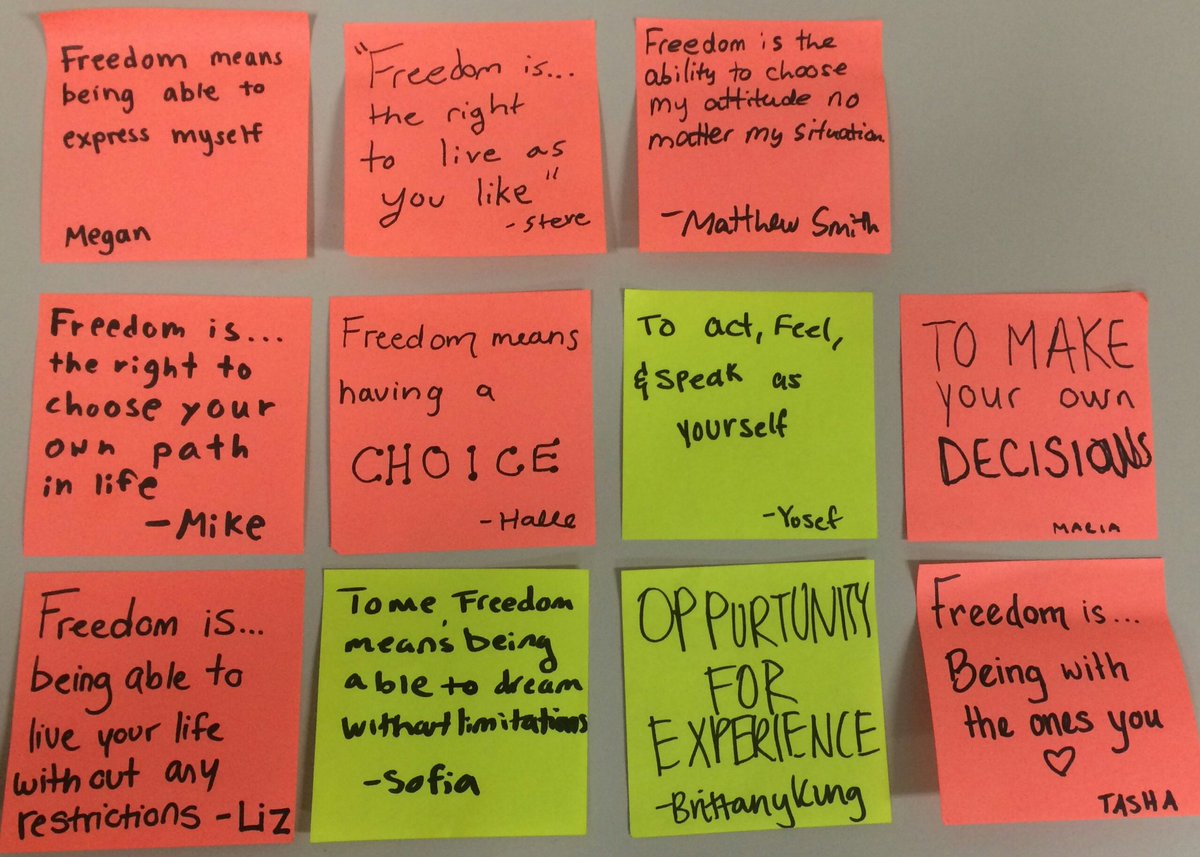 Freedom means
being able to
express myself
Megan
"Freedom is...
the right
to live as
you like"
-Steve
Freedom is the
ability to choose
my attitude no
matter my situation
-Matthew Smith
Freedom is...
the right to
choose your
own path
in life
-Mike
Freedom means
having a
CHOICE
-Halle
To act, Feel,
& speak as
yourself
-Yosef
TO MAKE
your own
DECISIONS
MARIA
Freedom is...
being able to
live your life
without any
restrictions -Liz
To me, Freedom
means being
able to dream
without limitations
-Sofia
OPPURTUNITY
FOR
EXPERIENCE
-Brittany Kung
Freedom is...
Being with
the ones you
♡
TASHA